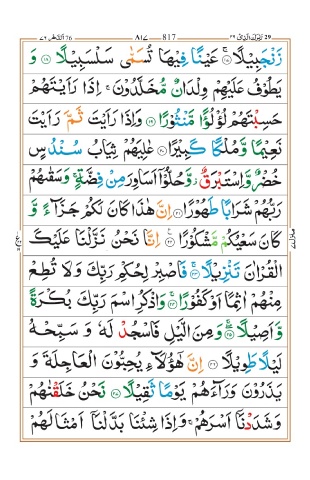 الدهر ٧٦ ٨١٧ 817 تبٰرك الذى ٢٩ 29
زَنْجَبِيْلًا ۝١٧ عَيْنًا فِيْهَا تُسَمّٰى سَلْسَبِيْلًا ۝١٨ وَ
يَطُوْفُ عَلَيْهِمْ وِلْدَانٌ مُّخَلَّدُوْنَ ۚ اِذَا رَاَيْتَهُمْ
حَسِبْتَهُمْ لُؤْلُؤًا مَّنْثُوْرًا ۝١٩ وَاِذَا رَاَيْتَ ثَمَّ رَاَيْتَ
نَعِيْمًا وَّ مُلْكًا كَبِيْرًا ۝٢٠ عٰلِيَهُمْ ثِيَابُ سُنْدُسٍ
خُضْرٌ وَّ اِسْتَبْرَقٌ ؗ وَّ حُلُّوْۤا اَسَاوِرَ مِنْ فِضَّةٍ ۚ وَ سَقٰىهُمْ
رَبُّهُمْ شَرَابًا طَهُوْرًا ۝٢١ اِنَّ هٰذَا كَانَ لَكُمْ جَزَآءً وَّ
كَانَ سَعْيُكُمْ مَّشْكُوْرًا ۝٢٢ اِنَّا نَحْنُ نَزَّلْنَا عَلَيْكَ
الْقُرْاٰنَ تَنْزِيْلًا ۝٢٣ فَاصْبِرْ لِحُكْمِ رَبِّكَ وَلَا تُطِعْ
مِنْهُمْ اٰثِمًا اَوْ كَفُوْرًا ۝٢٤ وَاذْكُرِ اسْمَ رَبِّكَ بُكْرَةً
وَّ اَصِيْلًا ۝٢٥ وَمِنَ الَّيْلِ فَاسْجُدْ لَهٗ وَ سَبِّحْهُ
لَيْلًا طَوِيْلًا ۝٢٦ اِنَّ هٰۤؤُلَآءِ يُحِبُّوْنَ الْعَاجِلَةَ وَ
يَذَرُوْنَ وَرَآءَهُمْ يَوْمًا ثَقِيْلًا ۝٢٧ نَحْنُ خَلَقْنٰهُمْ
وَشَدَدْنَاۤ اَسْرَهُمْ ۚ وَاِذَا شِئْنَا بَدَّلْنَاۤ اَمْثَالَهُمْ